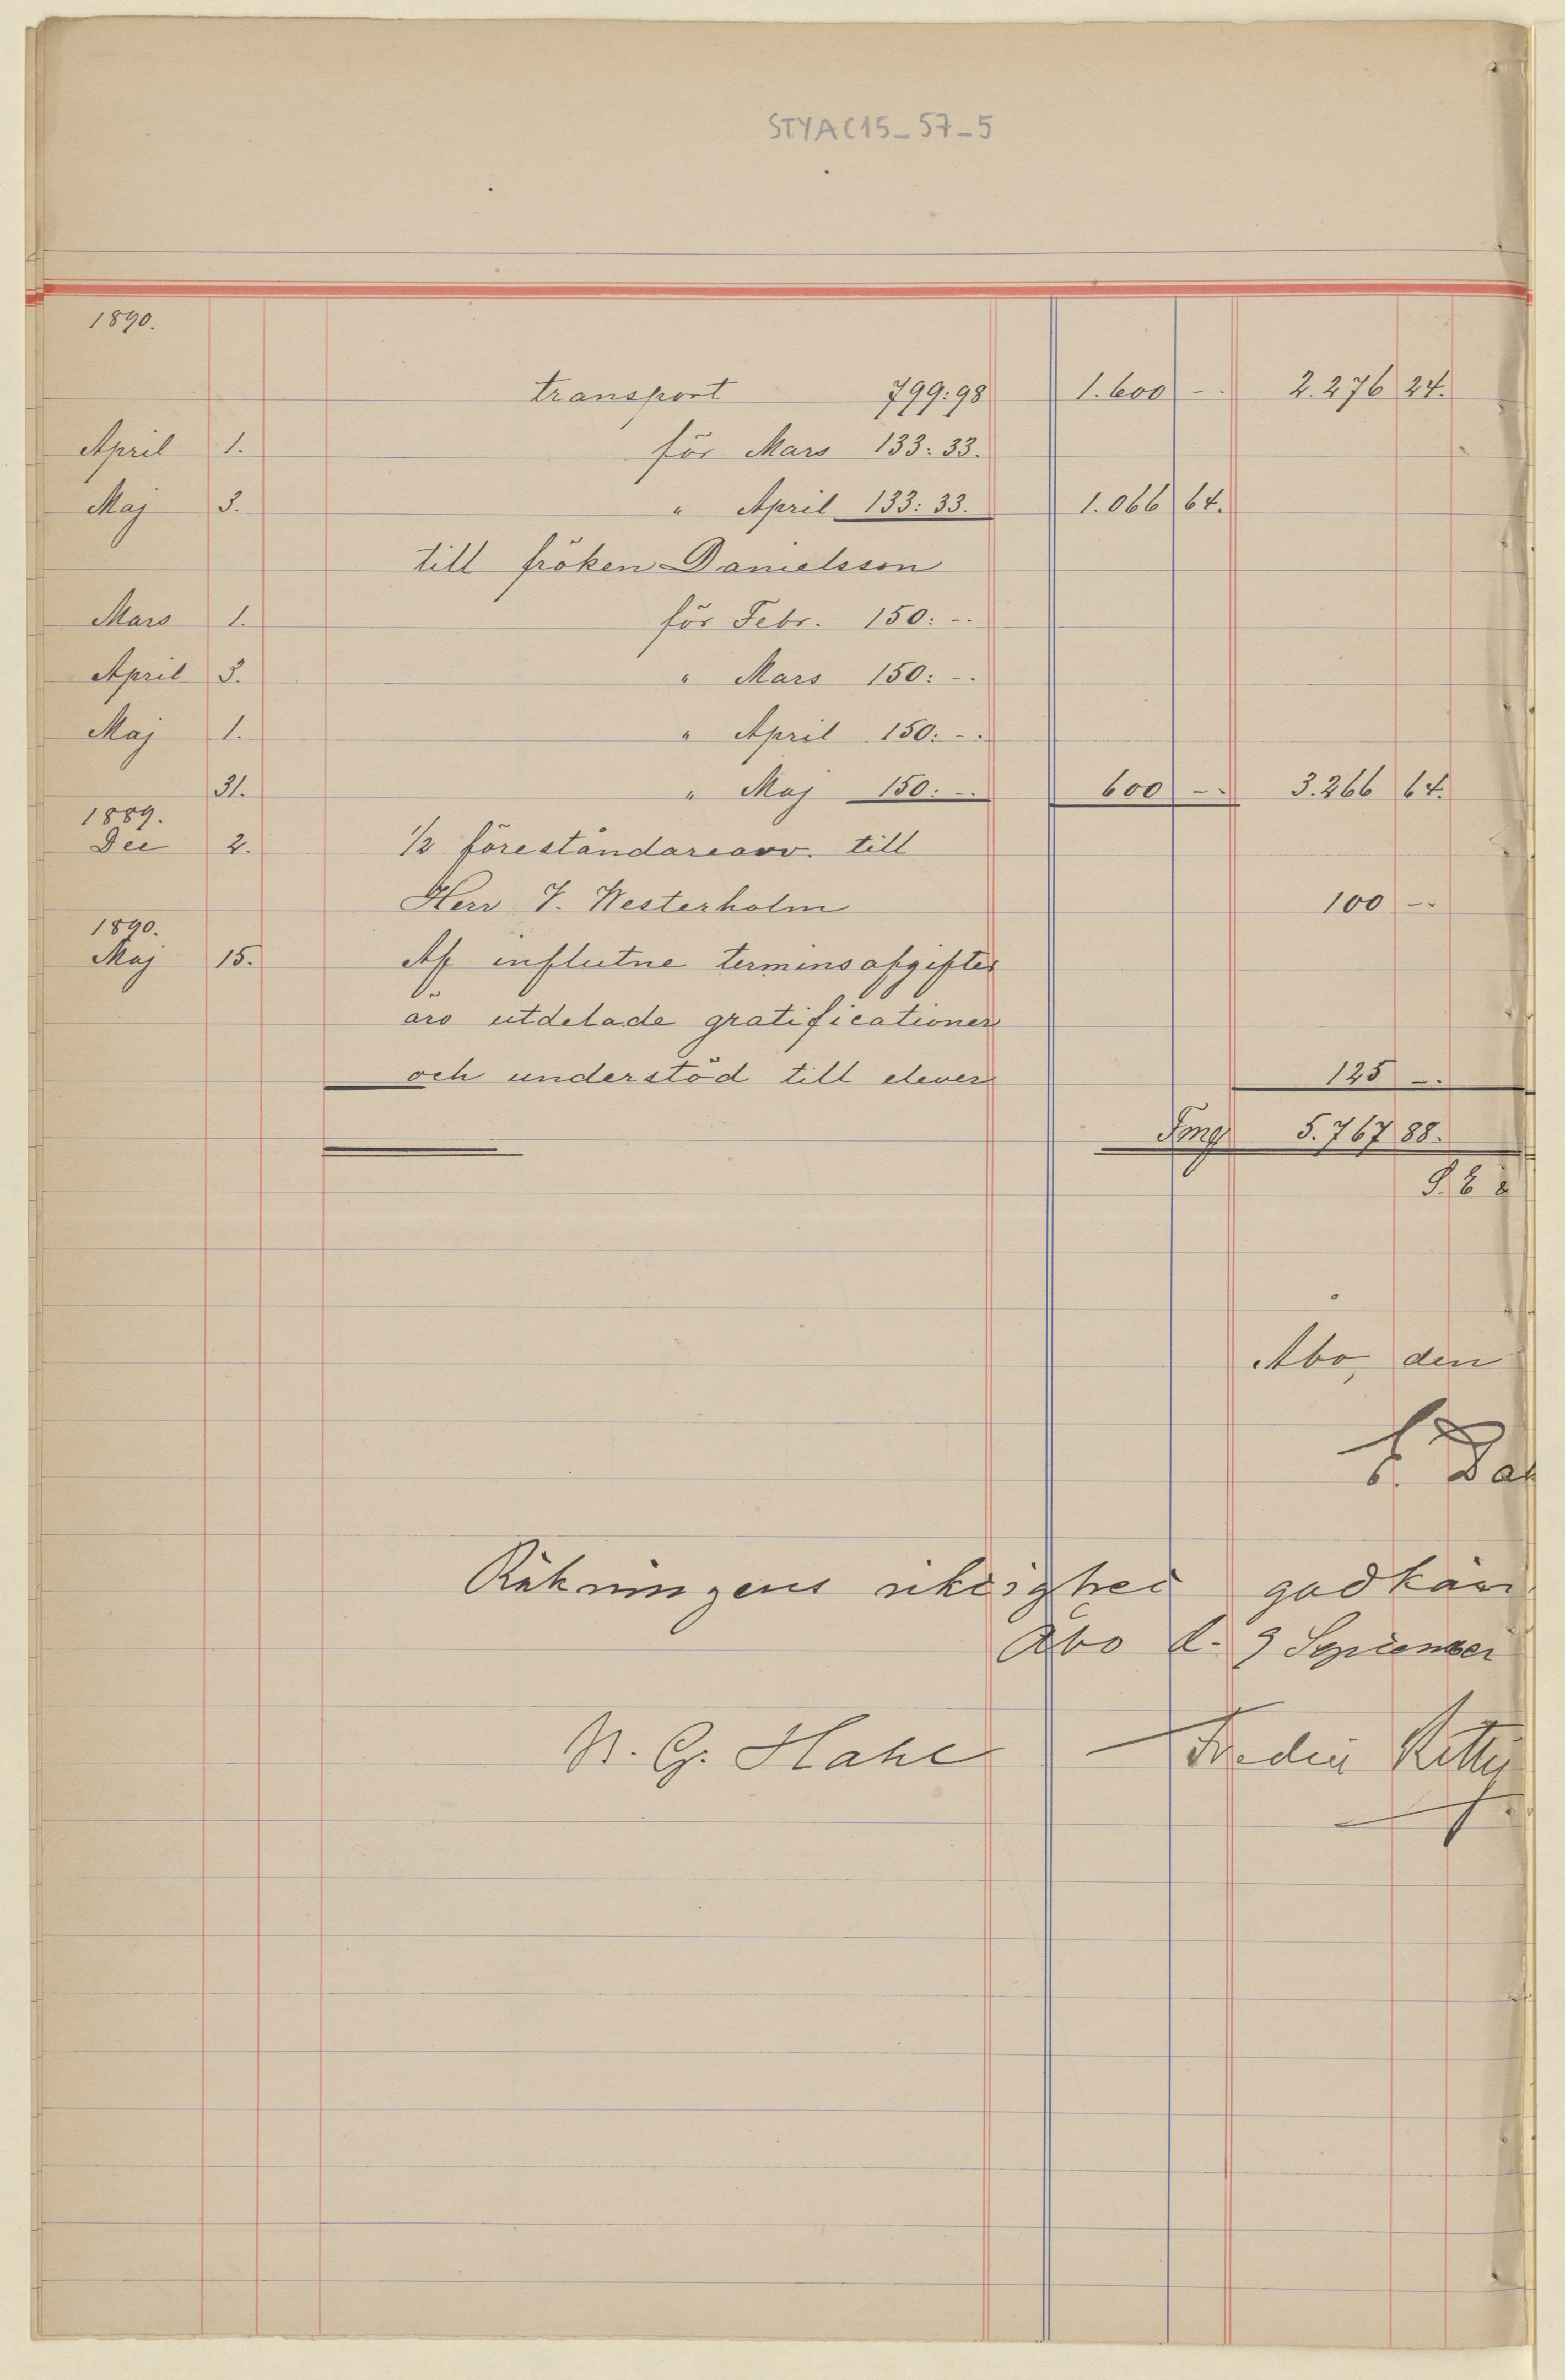 STYAC15_57_5
1890.
transport 799:98 1.600 - . 2.276 24.
April 1. för Mars 133:33.
Maj 3. " April 133:33. 1.066 64.
till fröken Danielsson
Mars 1. för Febr. 150: -.
April 3. " Mars 150: -.
Maj 1. " April 150: -.
31. " Maj 150: -. 600 -. 3.266 64.
1889.
Dec 2. 1/2 föreståndarearv. till
Herr V. Westerholm 100 -.
1890.
Maj 15. Af influtne terminsafgifter
äro utdelade gratificationer
och understöd till elever 125 -.
Fmg 5.767 88.
S. E &
Åbo, den
E. Da
Räkningens riktighet godkän
Åbo d. 9 September
Fredric